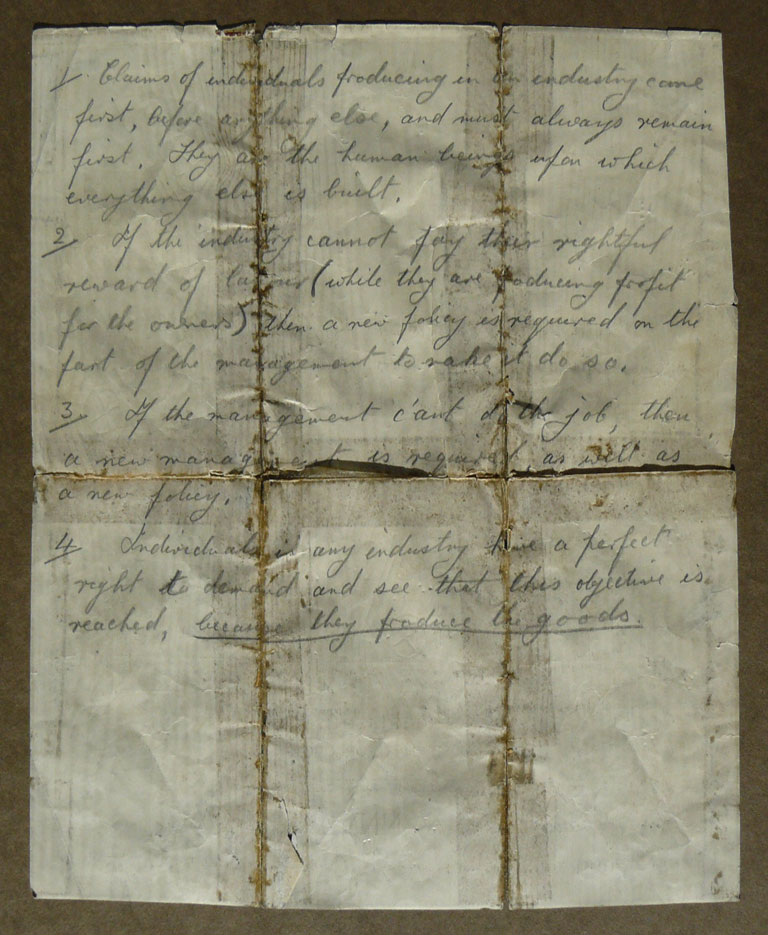 1 Claims of individuals producing in an industry come
first, before anything else, and must always remain
first. They are the human beings upon which
everything else is built.
2 If the industry cannot pay their rightful
reward of labour (while they are producing profit
for the owners) then a new policy is required on the
part of the management to make it do so.
3. If the management c'ant do the job, then
a new management is required, as well as
a new policy.
4 Individuals in any industry have a perfect
right to demand and see that this objective is
reached, because they produce the goods.